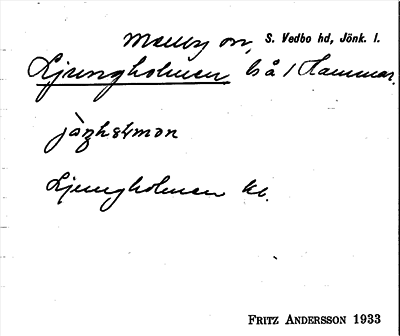 Malby sn, S. Vedbo hd, Jönk. l.
Ljungholmen, bå / Hammar.
Ljungholmen kb.
FRITZ ANDERSSON 1933